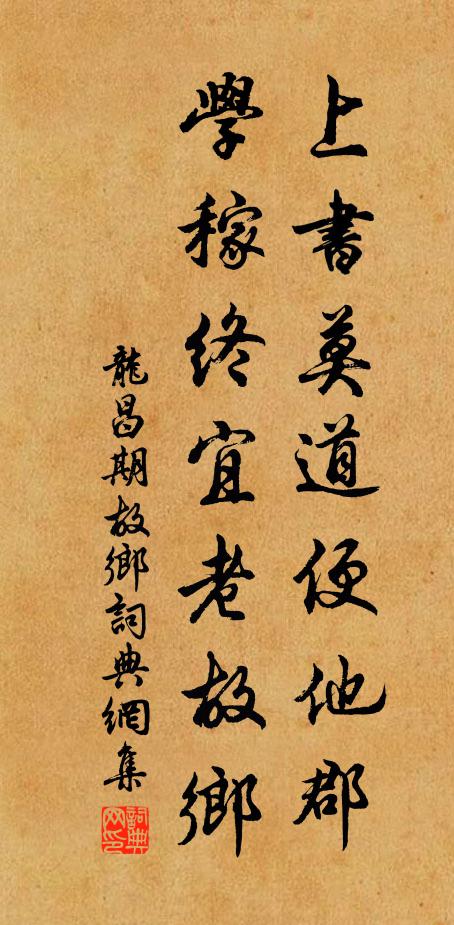 上書莫道便他郡
學稼終宜老故鄉
龍昌期故鄉詞典網集
詞典网印